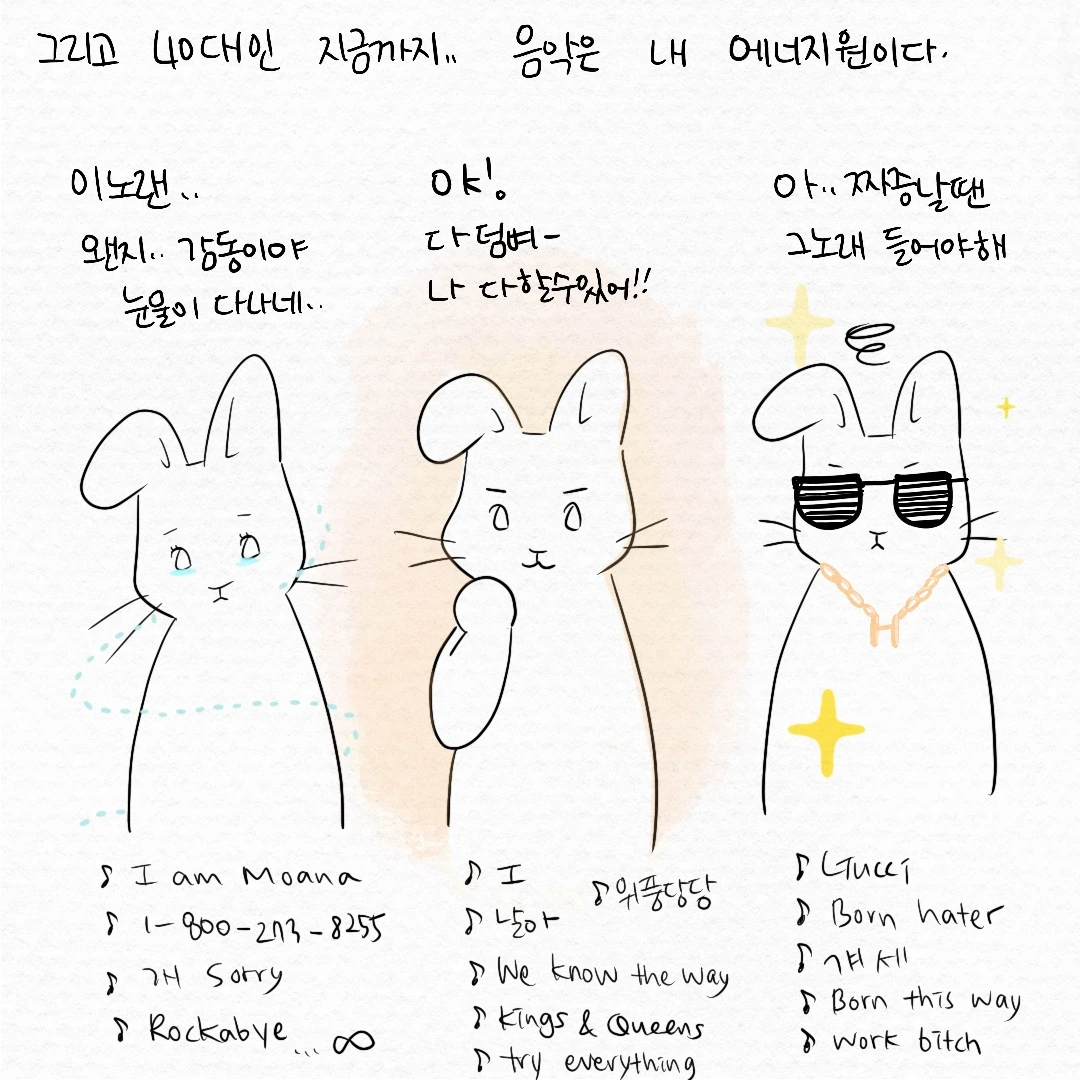 그리고 40대인 지금까지.. 음악은 내 에너지원이다.
이노랜..
왠지.. 감동이야
눈물이 다나네..
OK!
다덤벼-
나 다할수있어!!
아.. 짜증날땐
그노래 들어야해
H
♪ I am Moana
♪ 1-800-273-8255
♪ 걔 Sorry
♪ Rockabye ... ∞
♪ I
♪ 위풍당당
♪ 날아
♪ We know the way
♪ Kings & Queens
♪ try everything
♪ Gucci
♪ Born hater
♪ 걔세
♪ Born this way
♪ work bitch